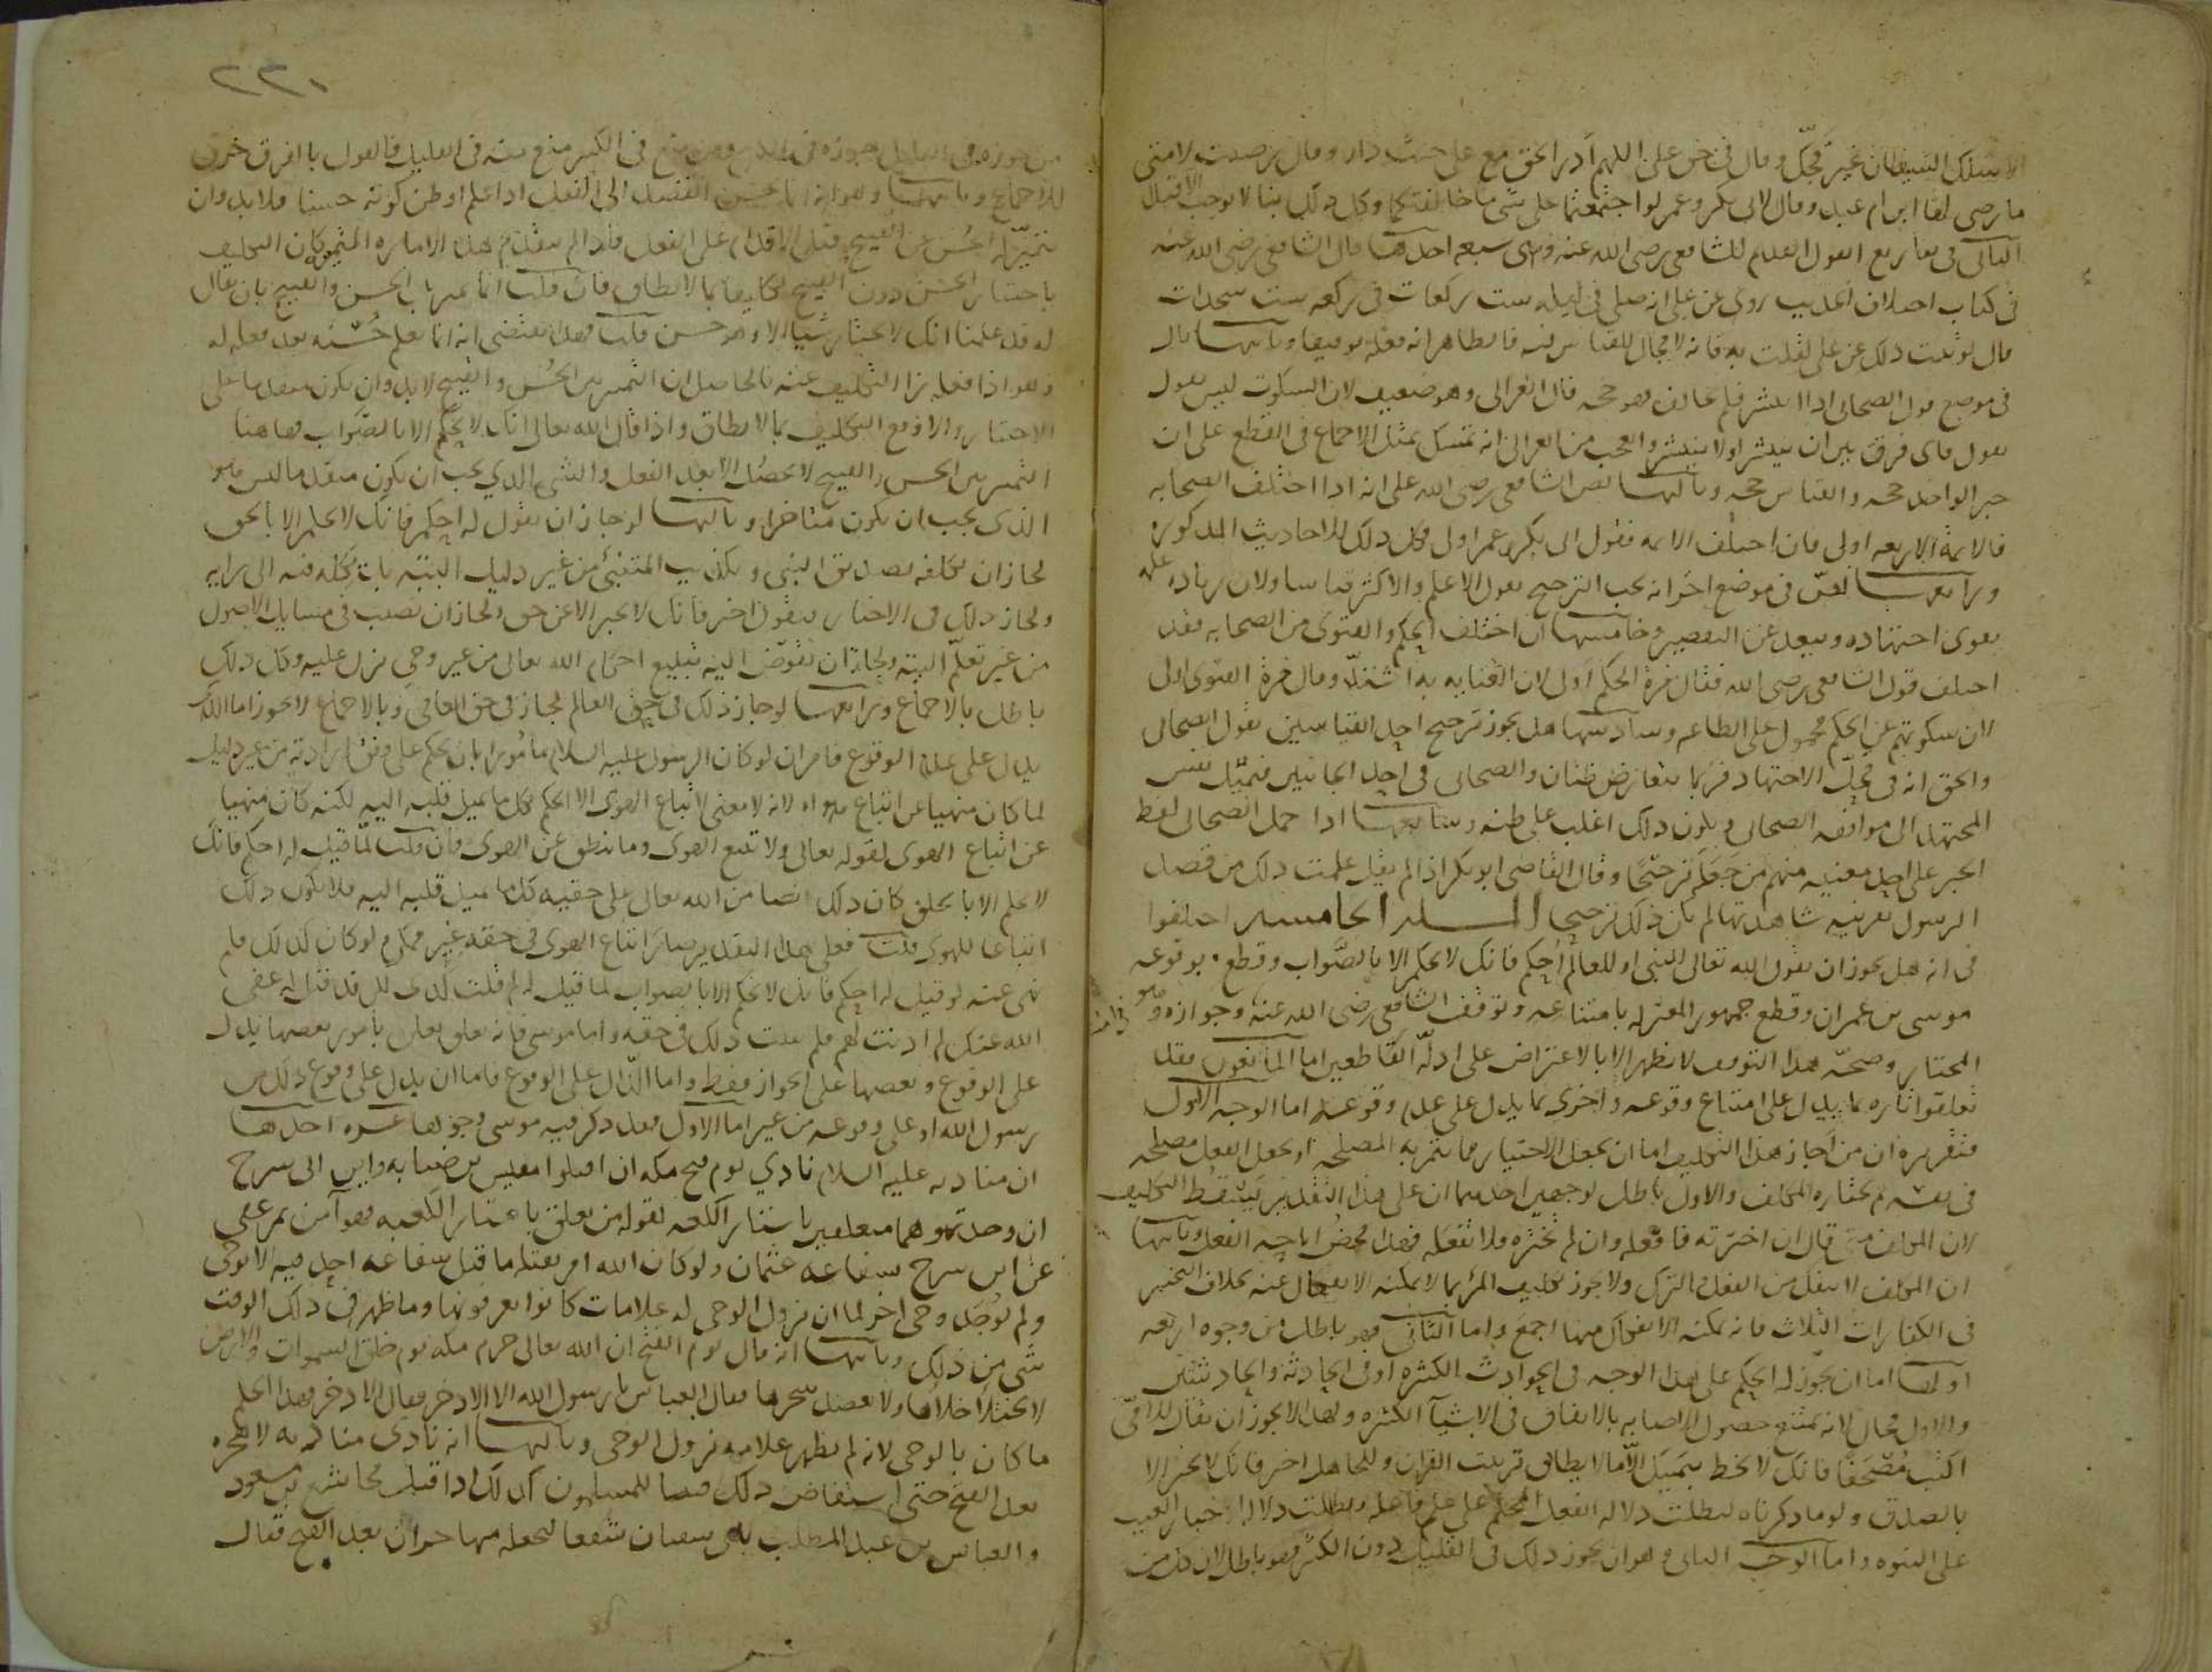 الا سلك الشيطان غير فجك وقال في حق علي اللهم ادر الحق مع علي حيث دار وقال رضيت لامتي
ما رضي لها ابن ام عبد وقال لابي بكر وعمر لو اجتمعتما على شي ما خالفتكما وكل ذلك بنا لا يوجب الاقتدا
الثاني في تفاريع القول القديم للشافعي رضي الله عنه وهي سبعة احدها قال الشافعي رضي الله عنه
في كتاب اختلاف الحديث روى عن علي انه صلى في ليلة ست ركعات في ركعة ست سجدات
قال لو ثبت ذلك عن علي لقلت به فانه لا مجال للقياس فيه فالظاهر انه فعله توقيفا وثانيها قال
في موضع قول الصحابي اذا انتشر فلم يخالف فهو حجة قال الغزالي وهو ضعيف لان السكوت ليس بقول
بقول فاي فرق بين ان ينتشر او لا ينتشر والعجب من الغزالي انه تمسك بمثل الاجماع في القطع على ان
خبر الواحد حجة والقياس حجة وثالثها نص الشافعي رضي الله على انه اذا اختلف الصحابة
فالائمة الاربعة اولى فان اختلف الائمة فقول ابي بكر وعمر اولى وكل ذلك للاحاديث المذكورة
ورابعها نص في موضع اخر انه يجب الترجيح بقول الاعلم والاكثر قياسا ولان زيادة علمه
يقوى اجتهاده ويبعد عن التقصير وخامسها ان اختلف الحكم والفتوى من الصحابة فقد
اختلف قول الشافعي رضي الله فقال مرة الحكم اولى لان العناية به اشد وقال مرة الفتوى اولى
لان سكوتهم عن الحكم محمول على الطاعة وسادسها هل يجوز ترجيح احد القياسين بقول الصحابي
والحق انه في محل الاجتهاد فربما يتعارض ظنان والصحابي في احد الجانبين فتميل نفس
المجتهد الى موافقة الصحابي ويكون ذلك اغلب على ظنه وسابعها اذا حمل الصحابي لفظ
الخبر على احد معنييه منهم من جعله ترجيحا وقال القاضي ابو بكر اذا لم يقل علمت ذلك من قصد
الرسول بقرينة شاهدتها لم يكن ذلك ترجيحا المسلة الخامسة اختلفوا
في انه هل يجوز ان يقول الله تعالى للنبي او للعالم احكم فانك لا تحكم الا بالصواب وقطع بوقوعه
موسى بن عمران وقطع جمهور المعتزلة بامتناعه وتوقف الشافعي رضي الله عنه في امتناعه وجوازه وهو
المختار وصحة هذا التوقف لا تظهر الا بالاعتراض على ادلة القاطعين اما المانعون فقد
تعلقوا تارة بما يدل على امتناع وقوعه واخرى بما يدل على عدم وقوعه اما الوجه الاول
فتقريره ان من اجاز هذا التكليف اما ان يجعل الاختيار مما تتم به المصلحة او يجعل الفعل مصلحة
في نفسه ثم يختاره المكلف والاول باطل لوجهين احدهما ان على هذا التقدير يسقط التكليف
لان المكلف متى قال ان اخترته فافعله وان لم تختره فلا تفعله فهذا محض اباحة الفعل وثانيها
ان المكلف لا ينفك من الفعل والترك ولا يجوز تكليف المرء بما لا يمكنه الانفكاك عنه بخلاف التخيير
في الكفارات الثلاث فانه يمكنه الانفكاك منها اجمع واما الثاني فهو باطل من وجوه اربعة
اولها اما ان يجوز له الحكم على هذا الوجه في الحوادث الكثيرة او في الحادثة والحادثتين
والاول محال لانه يمتنع حصول الاصابة بالاتفاق في الاشيآ الكثيرة ولهذا لا يجوز ان يقال للامي
اكتب مصحفا فانك لا تخط بيمينك الا ما يطابق ترتيب القران وللجاهل اخبر فانك لا تخبر الا
بالصدق ولو ما ذكرناه لبطلت دلالة الفعل المحكم على علم فاعله وبطلت دلالة الاخبار الغيب
على النبوه واما الوجه الثاني وهو ان يجوز ذلك في القليل دون الكثير فهو باطل لان كل من
٢٢١
من جوزه في القليل جوزه في الكثير ومن منع في الكثير منع منه في القليل فالقول بالفرق خرق
للاجماع وثانيها وهو انه انما يحسن القصد الى الفعل اذا علم او ظن كونه حسنا فلا بد وان
يتميز له الحسن عن القبيح قبل الاقدام على الفعل فاذا لم يتقدم هذه الامارة المميزة كان التكليف
باختيار الحسن دون القبيح تكليفا بما لا يطاق فان قلت انما تميز باب الحسن والقبيح بان يقال
له قد علمنا انك لا تختار شيا الا وهو حسن قلت فهذا يقتضي انه انما يعلم حسنه بعد فعله له
وهو اذا فعله زال التكليف عنه فالحاصل ان التمييز بين الحسن والقبيح لا بد وان يكون متقدما على
الاختيار والا وقع التكليف بما لا يطاق واذا قال الله تعالى انك لا تحكم الا بالصواب فهاهنا
التمييز بين الحسن والقبيح لا يحصل الا بعد الفعل والشي الذي يجب ان يكون متقدما ليس هو
الذي يجب ان يكون متاخرا وثالثها لو جاز ان يقول له احكم فانك لا تحكم الا بالحق
لجاز ان يكلفه تصديق النبي وتكذيب المتنبي من غير دليل البتة بان يكله فيه الى رايه
ولجاز ذلك في الاخبار فيقول اخبر فانك لا تخبر الا عن حق ولجاز ان يصيب في مسايل الاصول
من غير تعلم البتة ولجاز ان يفوض اليه تبليغ احكام الله تعالى من غير وحي نزل عليه وكل ذلك
باطل بالاجماع ورابعها لو جاز ذلك في حق العالم لجاز في حق العامي وبالاجماع لا يجوز اما الذي
يدل على عدم الوقوع فامران لو كان الرسول عليه السلام مامورا بان يحكم على وفق ارادته من غير دليل
لما كان منهيا عن اتباع هواه لانه لا معنى لاتباع الهوى الا الحكم بكل ما يميل قلبه اليه لكنه كان منهيا
عن اتباع الهوى لقوله تعالى ولا تتبع الهوى وما ينطق عن الهوى فان قلت لما قيل له احكم فانك
لا تحكم الا بالحق كان ذلك نصا من الله تعالى على حقية كل ما يميل قلبه اليه فلا يكون ذلك
اتباعا للهوى قلت فعلى هذا التقدير صار اتباع الهوى في حقه غير ممكن ولو كان كذلك فلم
نهى عنه لو قيل له احكم فانك لا تحكم الا بالصواب لما قيل له لم فعلت كذى لكن قد قيل له عفى
الله عنك لم اذنت لهم فلم يثبت ذلك في حقه واما موسى فانه تعلق بامور بعضها يدل
على الوقوع وبعضها على الجواز فقط واما الدال على الوقوع فاما ان يدل على وقوع ذلك من
رسول الله او على وقوعه من غير اما الاول فقد ذكر فيه موسى وجوها عشرة احدها
ان مناديه عليه السلام نادي يوم فتح مكة ان اقتلوا مقيس بن ضبابة وابن ابي سرح
ان وجدتموهما متعلقين باستار الكعبة لقوله من تعلق باستار الكعبة فهو آمن ثم عفى
عن ابن سرح بشفاعة عثمان ولو كان الله امر بقتله ما قبل شفاعة احد فيه الا بوحي
ولم يوجد وحي اخر لما ان نزول الوحي له علامات كانوا يعرفونها وما ظهر في ذلك الوقت
شي من ذلك وثانيها انه قال يوم الفتح ان الله تعالى حرم مكة يوم خلق السموات والارض
لا يختلا خلاها ولا يعضد شجرها فقال العباس يا رسول الله الا الاذخر فقال الا الاذخر فهذا الحكم
ما كان بالوحي لانه لم يظهر علامة نزول الوحي وثالثها انه نادى مناديه لا هجرة
بعد الفتح حتى استفاض ذلك فبينا المسلمون كذلك اذا اقبل مجاشع بن مسعود
والعباس بن عبد المطلب شفعا ليجعله مهاجرا بعد الفتح فقال